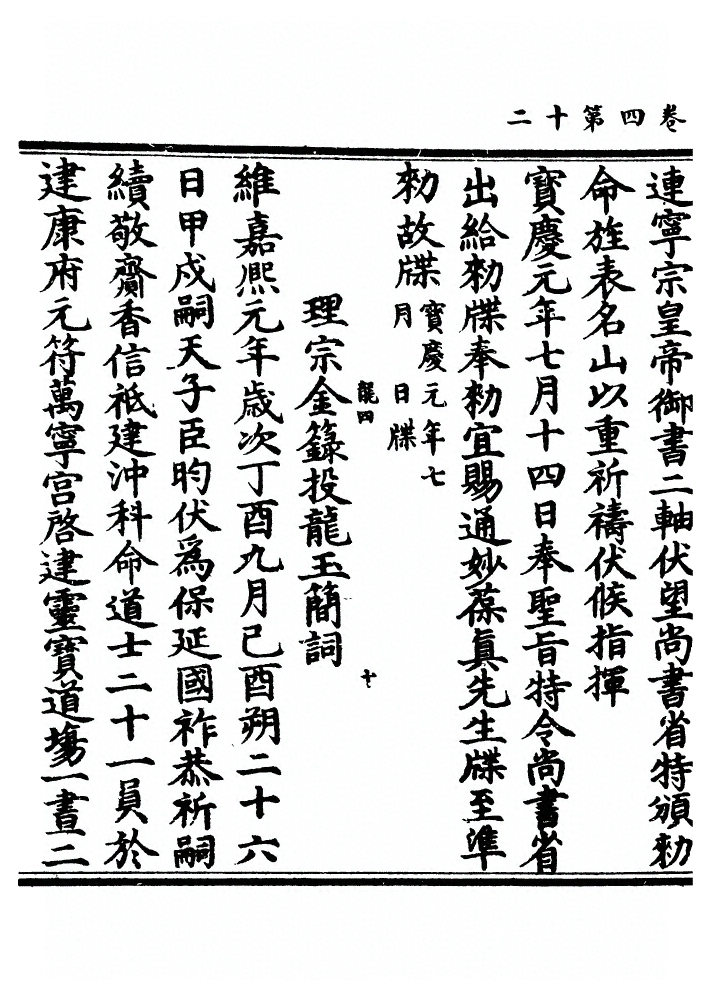 卷四第十二
連寧宗皇帝御書二軸伏望尚書省特頒勑
命旌表名山以重祈禱伏候指揮
寳慶元年七月十四日奉聖旨特令尚書省
出給勑牒奉勑宜賜通妙葆眞先生牒至準
勑故牒寳慶元年七
月 日牒
龍四
理宗金籙投龍玉簡詞
十
維嘉熈元年歲次丁酉九月己酉朔二十六
日甲戍嗣天子臣昀伏爲保延國祚恭祈嗣
續敬齎香信祗建沖科命道士二十一員於
建康府元符萬寧宮啓建靈寳道塲一晝二